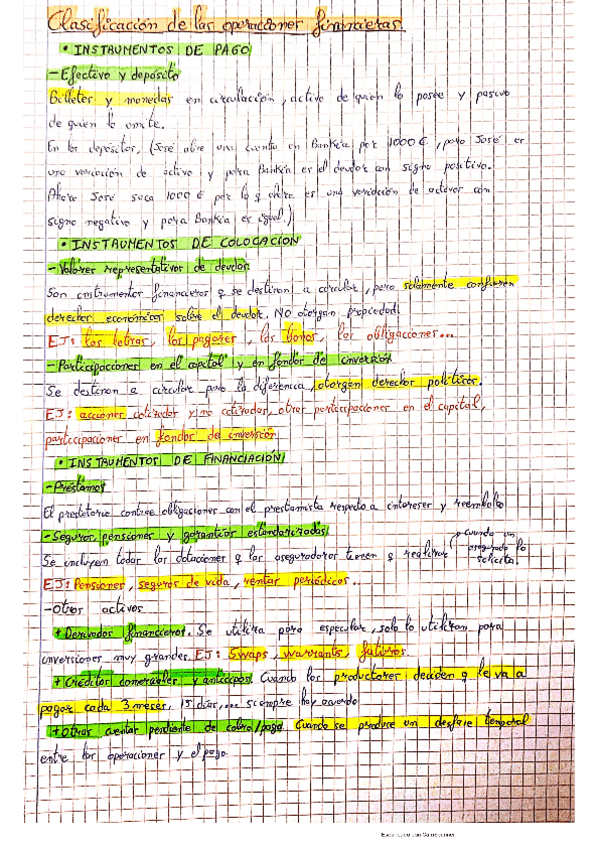 Clasificación de las operaciones financieras.
• INSTRUMENTOS DE PAGO
- Efectivo y depósito
Billetes y monedas en circulación, activo de quien lo posee y pasivo
de quien lo emite.
En los depósitos, (José abre una cuenta en Bankia por 1000 €, para José es
una variación de activo y para Bankia es el deudor con signo positivo.
Ahora José saca 1000 € por lo q ahora es una variación de activos con
signo negativo y para Bankia es igual.)
• INSTRUMENTOS DE COLOCACIÓN
- Valores representativos de deudas
Son instrumentos financieros q se destinan a circular, pero solamente confieren
derechos económicos sobre el deudor. NO otorgan propiedad.
EJ: las letras, los pagarés, los bonos, las obligaciones...
- Participaciones en el capital y en fondos de inversión
Se destinan a circular pero la diferencia, otorgan derechos políticos.
EJ: acciones cotizadas y no cotizadas, otras participaciones en el capital,
participaciones en fondos de inversión
• INSTRUMENTOS DE FINANCIACIÓN
- Préstamos
El prestatario contrae obligaciones con el prestamista respecto a intereses y reembolso
- Seguros, pensiones y garantías estandarizadas
Se incluyen todas las dotaciones q las aseguradoras tienen q realizar
cuando un
asegurado lo
solicita.
EJ: Pensiones, seguros de vida, rentas periódicas...
- Otros activos
+ Derivados financieros. Se utiliza para especular, solo lo utilizan para
inversiones muy grandes. EJ: Swaps, warrants, futuros.
+ Créditos comerciales y anticipos. Cuando los productores deciden q le va a
pagar cada 3 meses, 15 días,... siempre hay acuerdo
+ Otras cuentas pendiente de cobro/pago. Cuando se produce un desfase temporal
entre las operaciones y el pago.